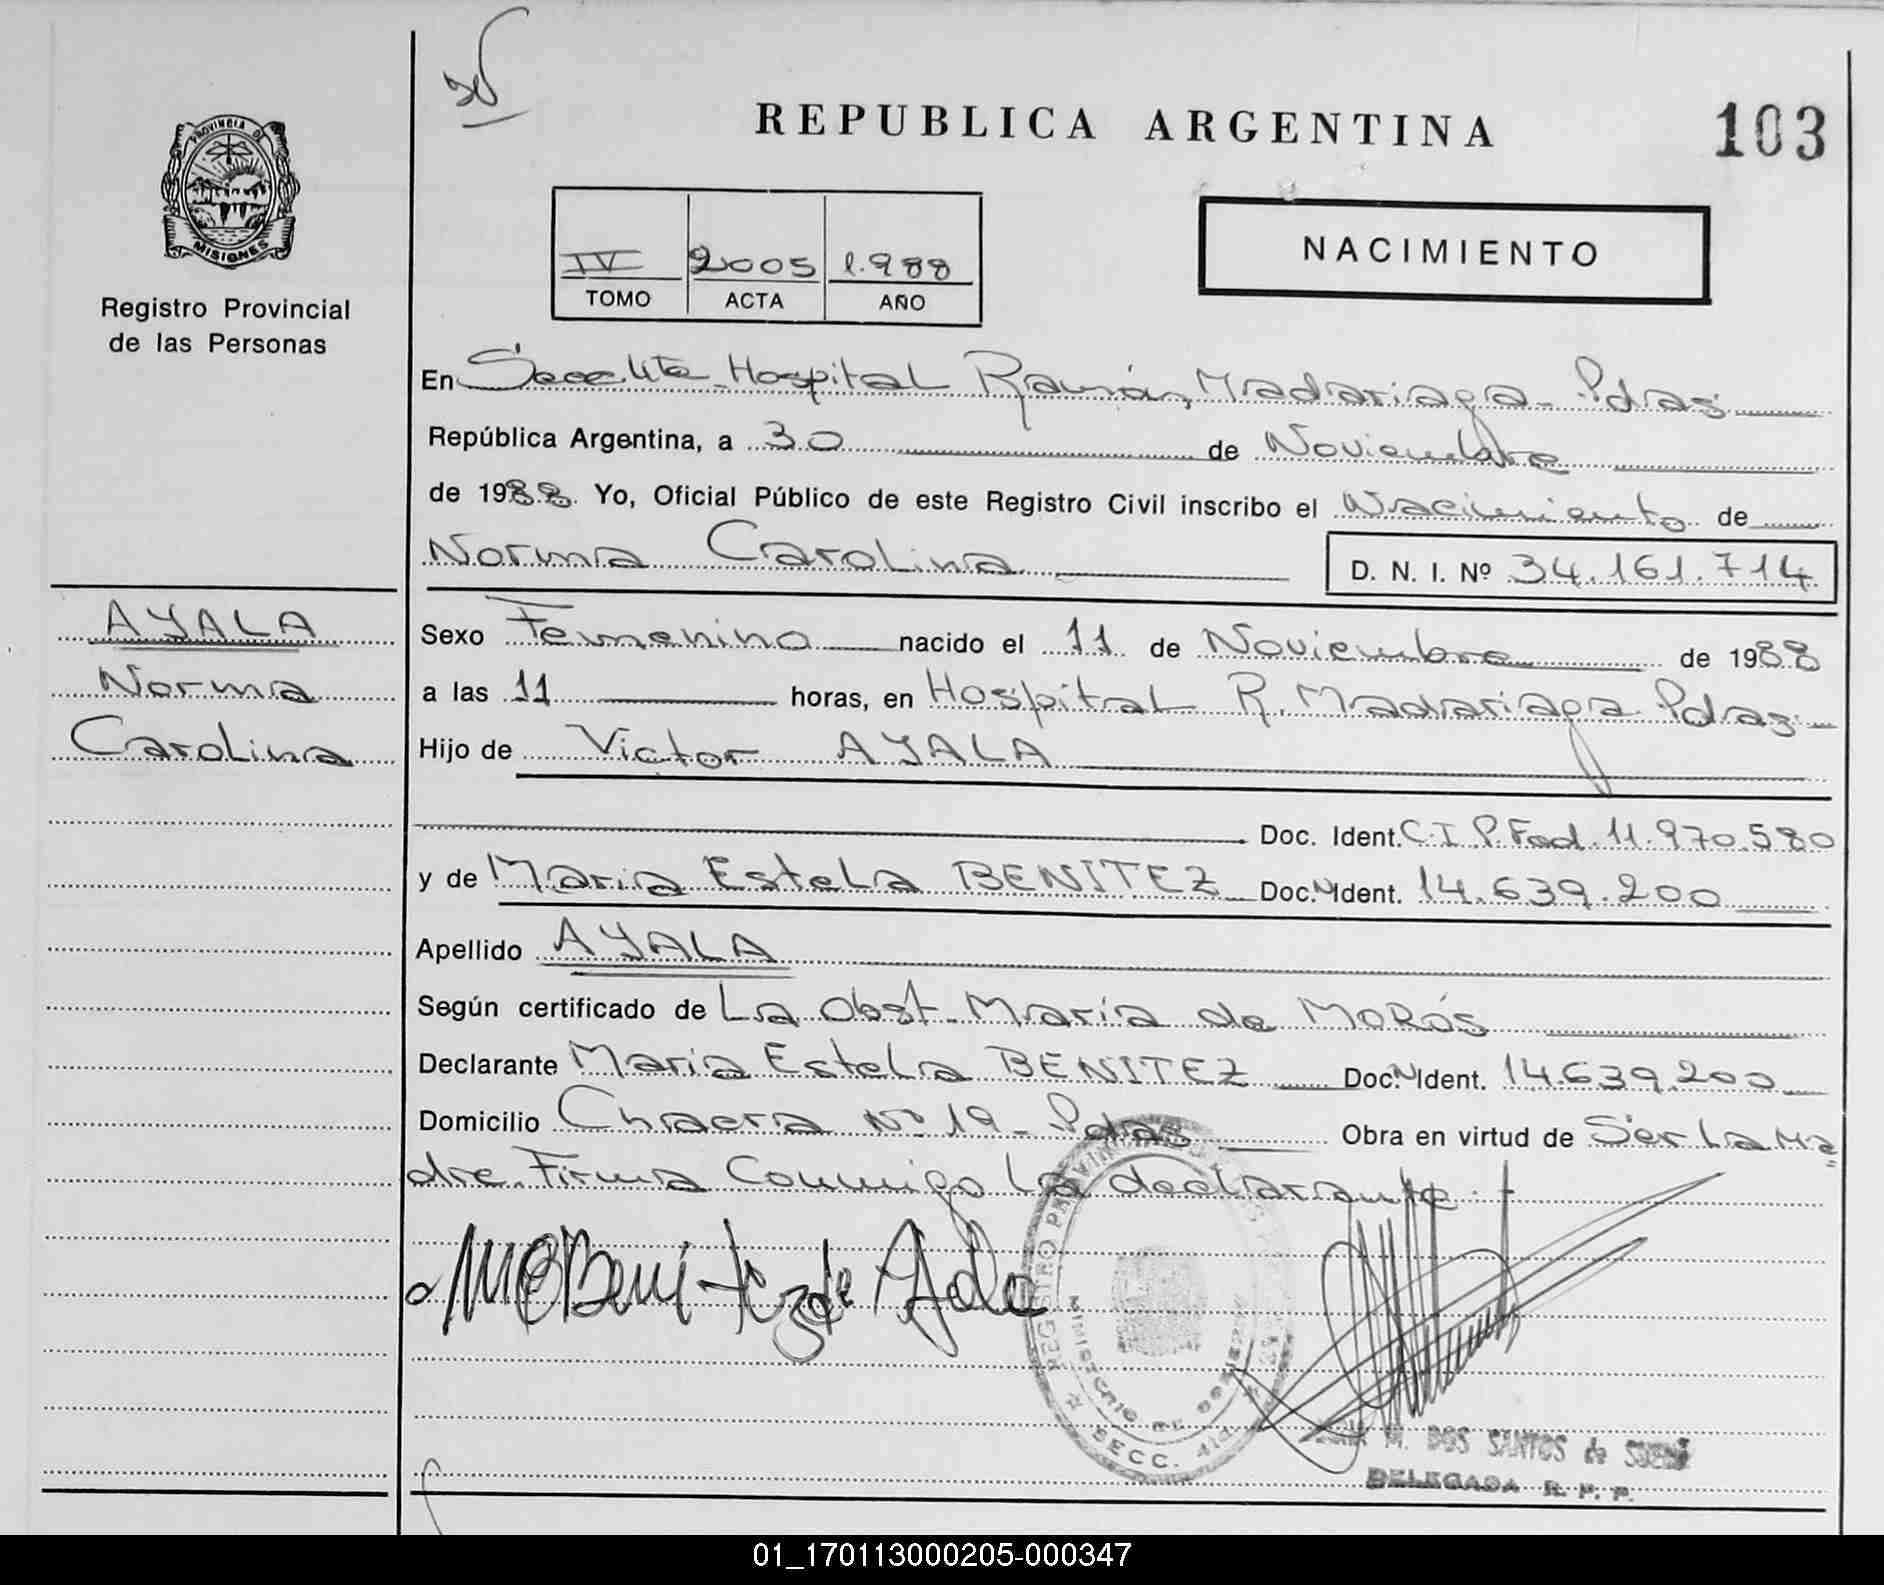 REPUBLICA ARGENTINA
103
PROVINCIA DE
MISIONES
Registro Provincial
de las Personas
IV 2005 1.988
TOMO ACTA AÑO
NACIMIENTO
En Hospital Ramón Madariaga - Pdas
República Argentina, a 30 de Noviembre
de 1988. Yo, Oficial Público de este Registro Civil inscribo el Nacimiento de
Norma Carolina
D. N. I. Nº 34.161.714
AYALA
Norma
Carolina
Sexo Femenino nacido el 11 de Noviembre de 1988
a las 11 horas, en Hospital R. Madariaga Pdas
Hijo de Victor AYALA
Doc. Ident. C.I.P.Fed. 11.970.580
y de Maria Estela BENITEZ Doc. N Ident. 14.639.200
Apellido AYALA
Según certificado de La Obst. María de MORÓS
Declarante Maria Estela BENITEZ Doc. N Ident. 14.639.200
Domicilio Chacra Nº 19 - Pdas Obra en virtud de Ser La Ma
dre. Firma Conmigo La declarante.
Benitez de Ayala
REGISTRO
MINISTERIO DE
SECC.
M. DOS SANTOS de
DELEGADA R. P. P.
01_170113000205-000347